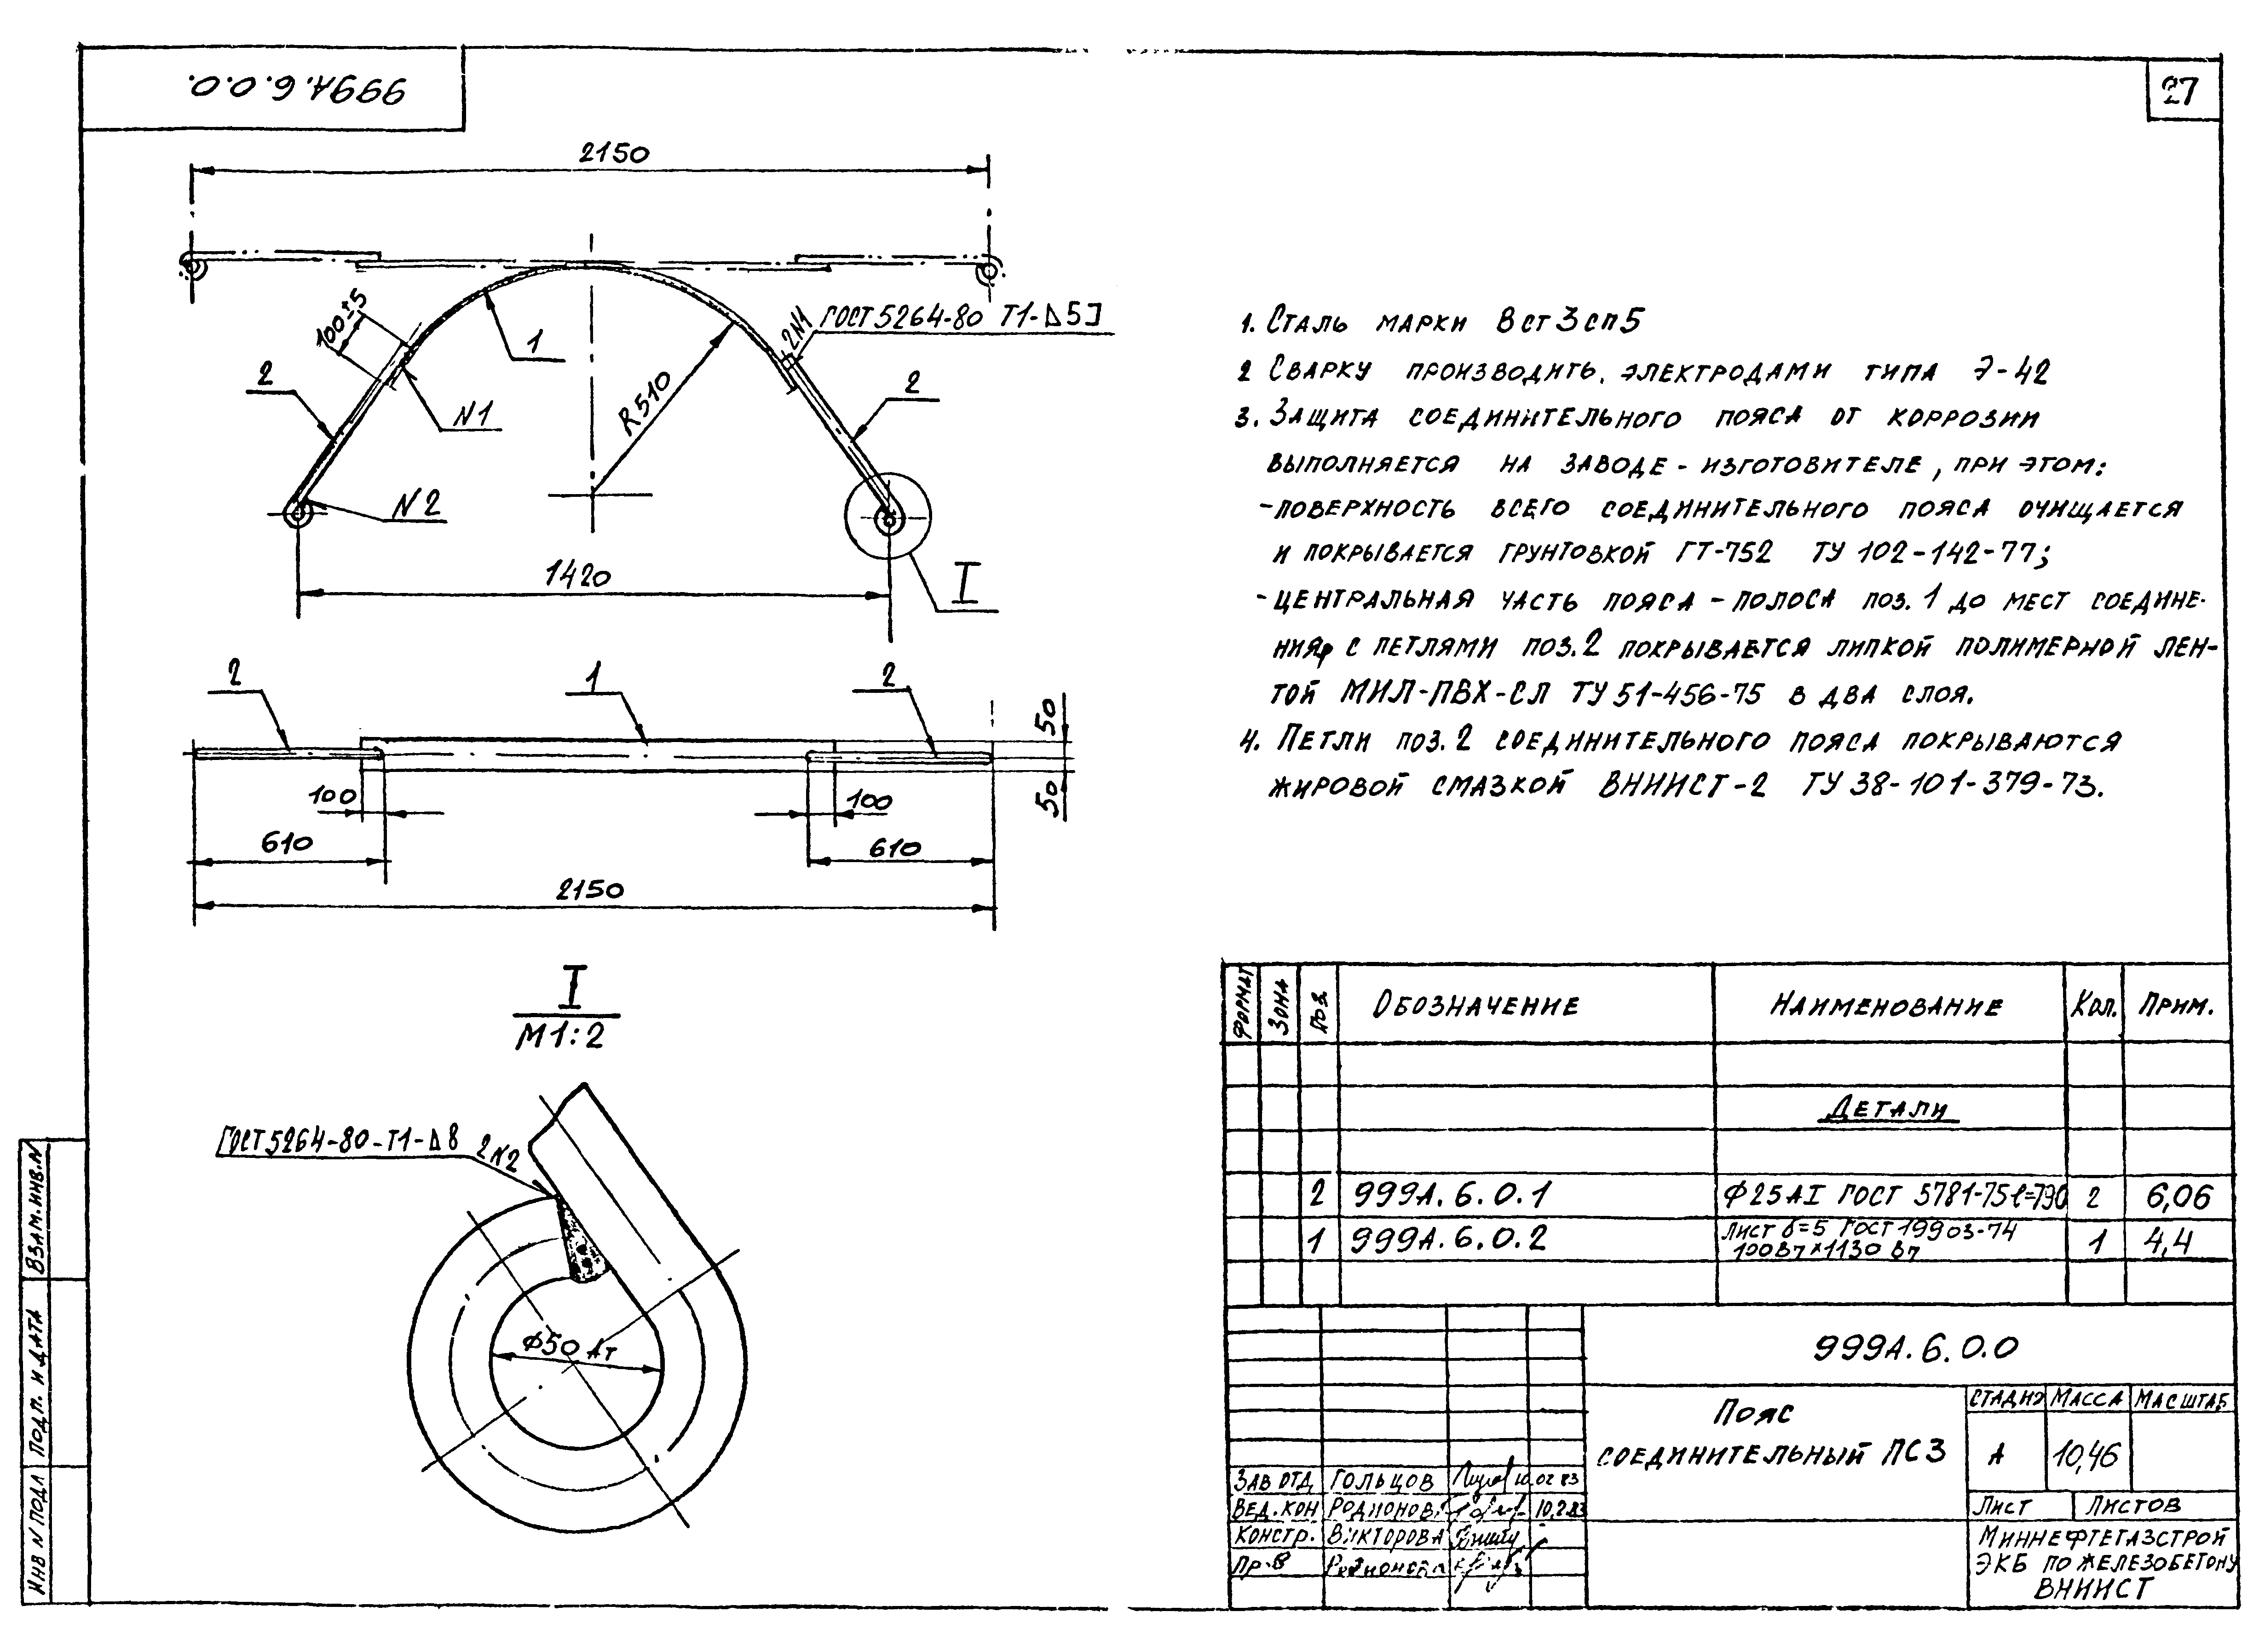 999А.6.0.0.
27
2150
100±5
1
2
N1
2N1
ГОСТ 5264-80 Т1-Δ5
R510
2
N2
1420
I
2
1
2
50
50
100
100
610
610
2150
I
М1:2
ГОСТ 5264-80-Т1-Δ8
2N2
Ф50 Ат
1. Сталь марки Вст3сп5
2 Сварку производить электродами типа Э-42
3. Защита соединительного пояса от коррозии
выполняется на заводе-изготовителе, при этом:
-поверхность всего соединительного пояса очищается
и покрывается грунтовкой ГТ-752 ТУ 102-142-77;
-центральная часть пояса - полоса поз. 1 до мест соедине-
ния с петлями поз. 2 покрывается липкой полимерной лен-
той МИЛ-ПВХ-СЛ ТУ 51-456-75 в два слоя.
4. Петли поз. 2 соединительного пояса покрываются
жировой смазкой ВНИИСТ-2 ТУ 38-101-379-73.
Формат Зона Поз. Обозначение Наименование Кол. Прим.
Детали
2 999А.6.0.1 Ф25АI ГОСТ 5781-75 ℓ=790 2 6,06
1 999А.6.0.2 Лист δ=5 ГОСТ 19903-74
100 В7×1130 В7 1 4,4
999А.6.0.0
Пояс
соединительный ПС3
Стадия Масса Масштаб
А 10,46
Лист Листов
Миннефтегазстрой
ЭКБ по железобетону
ВНИИСТ
Зав отд Гольцов 10.02 83
Вед. кон Родионов 10.2.83
Констр. Викторова
Пр-в
Взам. инв. N
Подп. и дата
Инв N подл